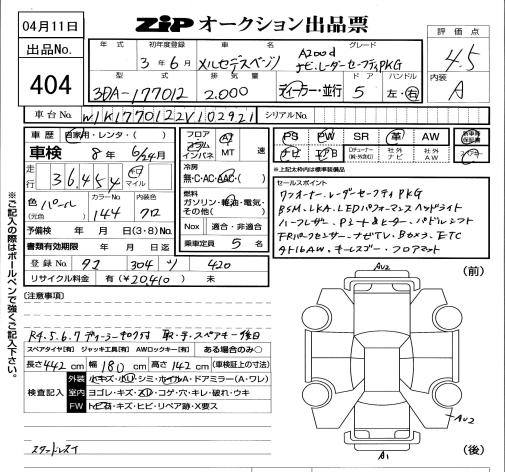 04月11日
ZIP オークション出品票
出品No.
404
年式 初年度登録 車名 グレード
3年6月 メルセデスベンツ A200d
ナビ・レーダーセーフティPKG
型式 排気量 ドア ハンドル
3DA-177012 2.000 ディーラー・並行 5 左・右
評価点
4.5
内装
A
車台No. W1K1770122V102921 シリアルNo.
車歴 自家用・レンタ・( )
車検 8年 6/24月
走行 36,454 km マイル
色 パール (元色) 144 カラーNo. 内装色 クロ
予備検 年 月 日(3・8)No.
書類有効期限 年 月 日迄
登録No. 304 ソ 420
リサイクル料金 有(¥20,410) 未
フロア コラム インパネ AT MT 速
冷房 無・C・AC・AAC・( )
燃料 ガソリン・軽油・電気・その他( )
Nox 適合・非適合
乗車定員 5 名
PS PW SR 革 AW
ナビ エアB TVチューナー(純・外含む) 社外ナビ 社外AW
新車時保証書
※上記太枠内は純正装備品
セールスポイント
ワンオーナー レーダーセーフティPKG
BSM LKA LEDパフォーマンスヘッドライト
ハーフレザー Pシート&ヒーター パドルシフト
FRパークセンサー ナビTV Bカメラ ETC
タイ16AW キーレスゴー フロアマット
[注意事項]
R4.5.6.7 ディーラー 取・手・スペアキー後日
スペアタイヤ[有] ジャッキ工具[有] AWロックキー[有] ある場合のみ○
長さ442cm 幅180cm 高さ142cm (車検証上の寸法)
検査記入
外装 小キズ・小凹・シミ・ホイルA・ドアミラー(A・ワレ)
室内 ヨゴレ・キズ・スレ・コゲ・穴・キレ・破れ・ウキ
FW トビ石・キズ・ヒビ・リペア跡・X要ス
スタッドレス
※ご記入の際はボールペンで強くご記入下さい。
(前)
AU2
AU2
A1
(後)